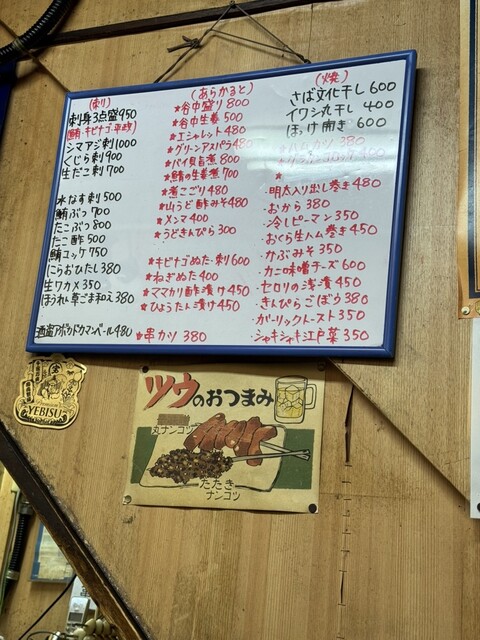 (刺り)
刺身3点盛950
(鮪・キビナゴ・平政)
シマアジ刺1000
くじら刺900
生だこ刺700
水なす刺500
鮪ぶつ 700
たこぶつ 800
たこ酢 500
鮪ユッケ 750
にらおひたし380
生ワカメ 350
ほうれん草ごま和え380
酒盗アボカドカマンベール480
(あらかると)
★谷中盛り800
★谷中生姜 500
★エシャレット480
★グリーンアスパラ480
★バイ貝旨煮800
★鮪の生姜煮700
★煮こごり 480
★山うど 酢みそ480
★メンマ 400
★うどきんぴら 300
★キビナゴぬた・刺り600
★ねぎぬた 400
★ママカリ酢漬け450
★ひょうたん漬け450
★串カツ 380
(焼)
さば文化干し600
イワシ丸干し 400
ほっけ開き 600
★
・明太入り出し巻き480
・おから 380
・冷しピーマン 350
・おくら生ハム巻き 450
・かぶみそ 350
・カニ味噌チーズ 600
・セロリの浅漬 450
・きんぴらごぼう380
・ガーリックトースト350
・シャキシャキ江戸菜350
YEBISU
ツウのおつまみ
丸ナンコツ
たたき
ナンコツ